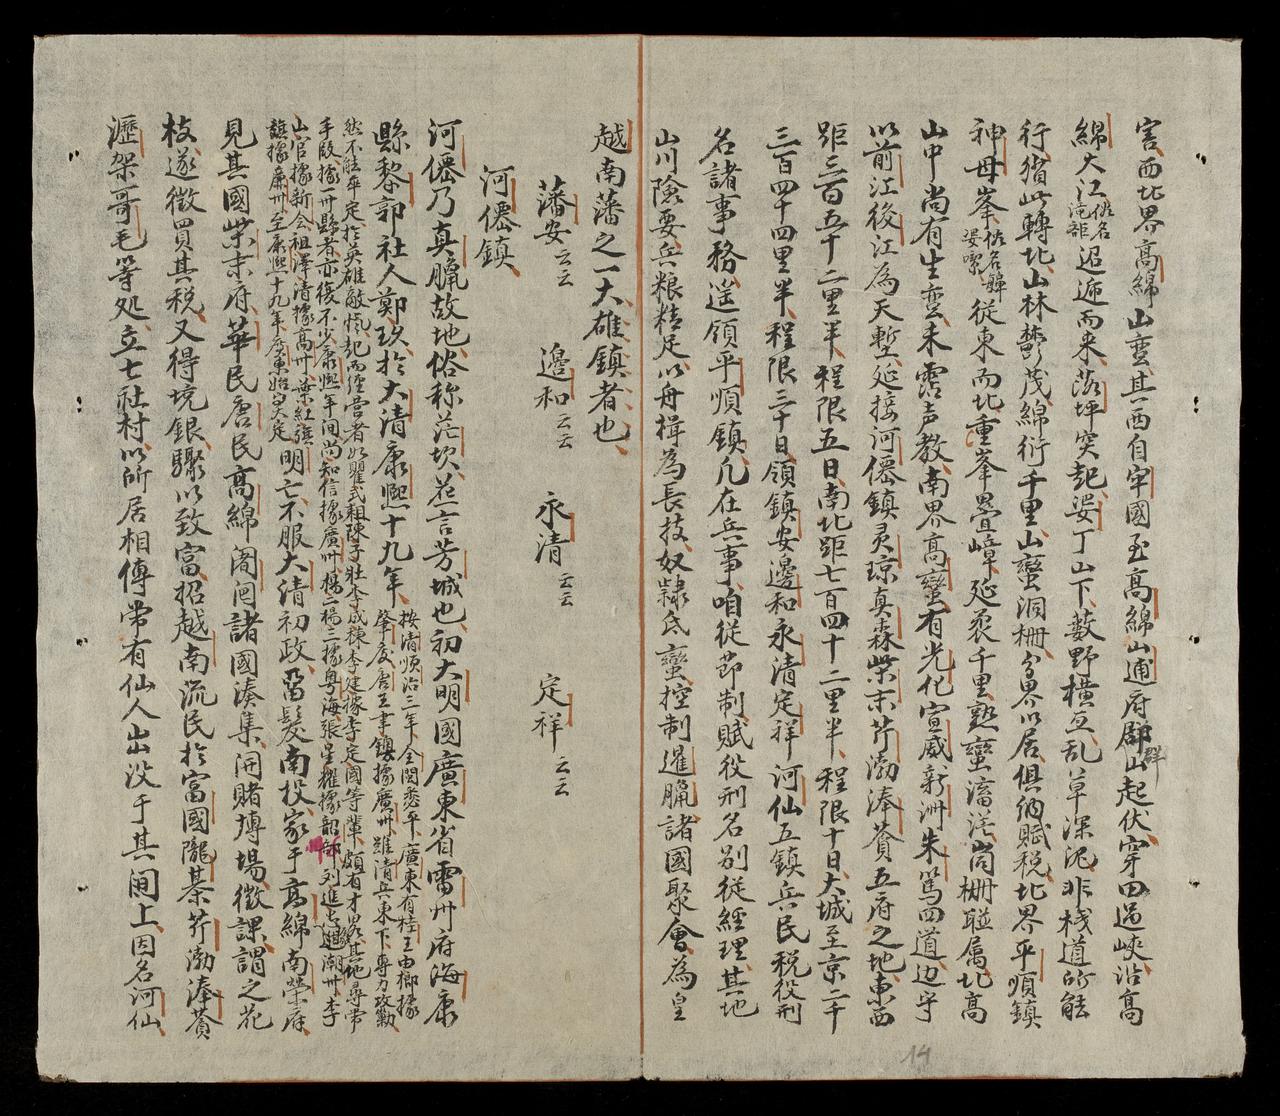 害西北界高綿山蠻其西自牢國至高綿山逋府郡山起伏穿田過峽沿高
群
綿大江俗名淹韶迢遞而來落坪突起婆丁山下藪野橫亙乱草深泥非栈道所能
行繞此轉北山林欝茂綿衍千里山蠻洞柵分界以居俱納賦税北界平順鎮
神母峯俗名婆從東而北重峯疊嶂延袤千里熟蠻柵聯属北高
山中尚有生蛮未霑声教南界高蠻有光化宣威新洲朱篤四道边守
以前江後江為天塹延接河僊鎮灵琼真森柴末芹渤湊薲五府之地東西
距三百五十二里半程限五日南北距七百四十二里半程限十日大城至京二千
三百四十四里半程限三十日領鎮安邊和永清定祥河仙五鎮兵民税役刑
名諸事務遥領平順鎮凡在兵事咱從節制賦役刑名别從經理其地
山川險要兵粮精足以舟楫為長技奴隷氐蠻控制暹臘諸國聚會為皇
越南藩之一大雄鎮者也
藩安云云 邊和云云 永清云云 定祥云云
河僊鎮
河僊乃真臘故地俗称茫坎花言芳城也初大明國廣東省雷州府海康
縣黎郭社人鄭玖於大清康熙十九年按清順治三年全閩悉平廣東有桂王由榔據
肇慶唐王聿鐭據廣州雖清兵東下專力攻勦
然不能卒定於英雄敵愾起而經营者如瞿式耜陳子壯李成棟李建李定國等輩頗有才畧其他尋常
手段據一州縣者亦復不少康熙年间尚知信據廣州楊二楊三據粤海張星耀據韶部列進忠據潮州李
山官據新会祖澤清據高州葉紅
旗據廉州至康熙十九年廣東始安定明亡不服大清初政畱髮南投家于高綿南榮府
見其國柴末府華民唐民高綿闍闼諸國湊集開賭博場徵課謂之花
枝遂徵買其税又得境銀驟以致富招越南流民於富國隴棊芹渤湊薲
瀝架哥毛等処立七社村以所居相傳常有仙人出没于其间上因名河仙